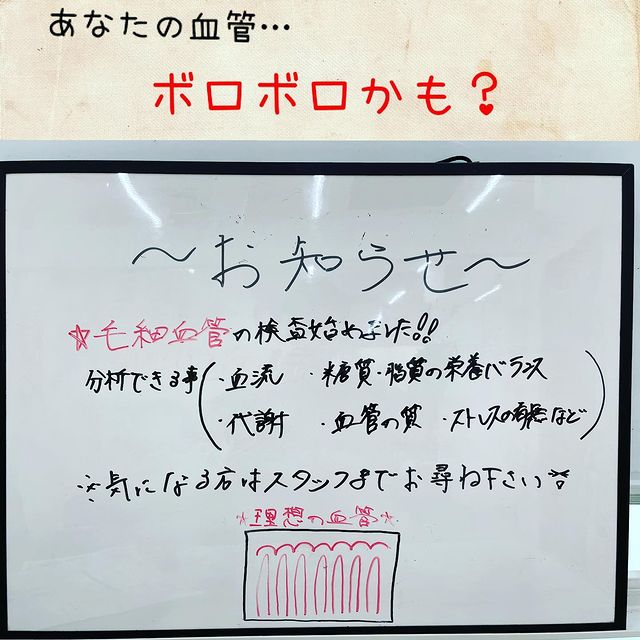 あなたの血管…
ボロボロかも?
～お知らせ～
☆毛細血管の検査始めました!!
分析できる事(・血流 ・糖質・脂質の栄養バランス
・代謝 ・血管の質 ・ストレスの有無など)
※気になる方はスタッフまでお尋ね下さい※
☆理想の血管☆